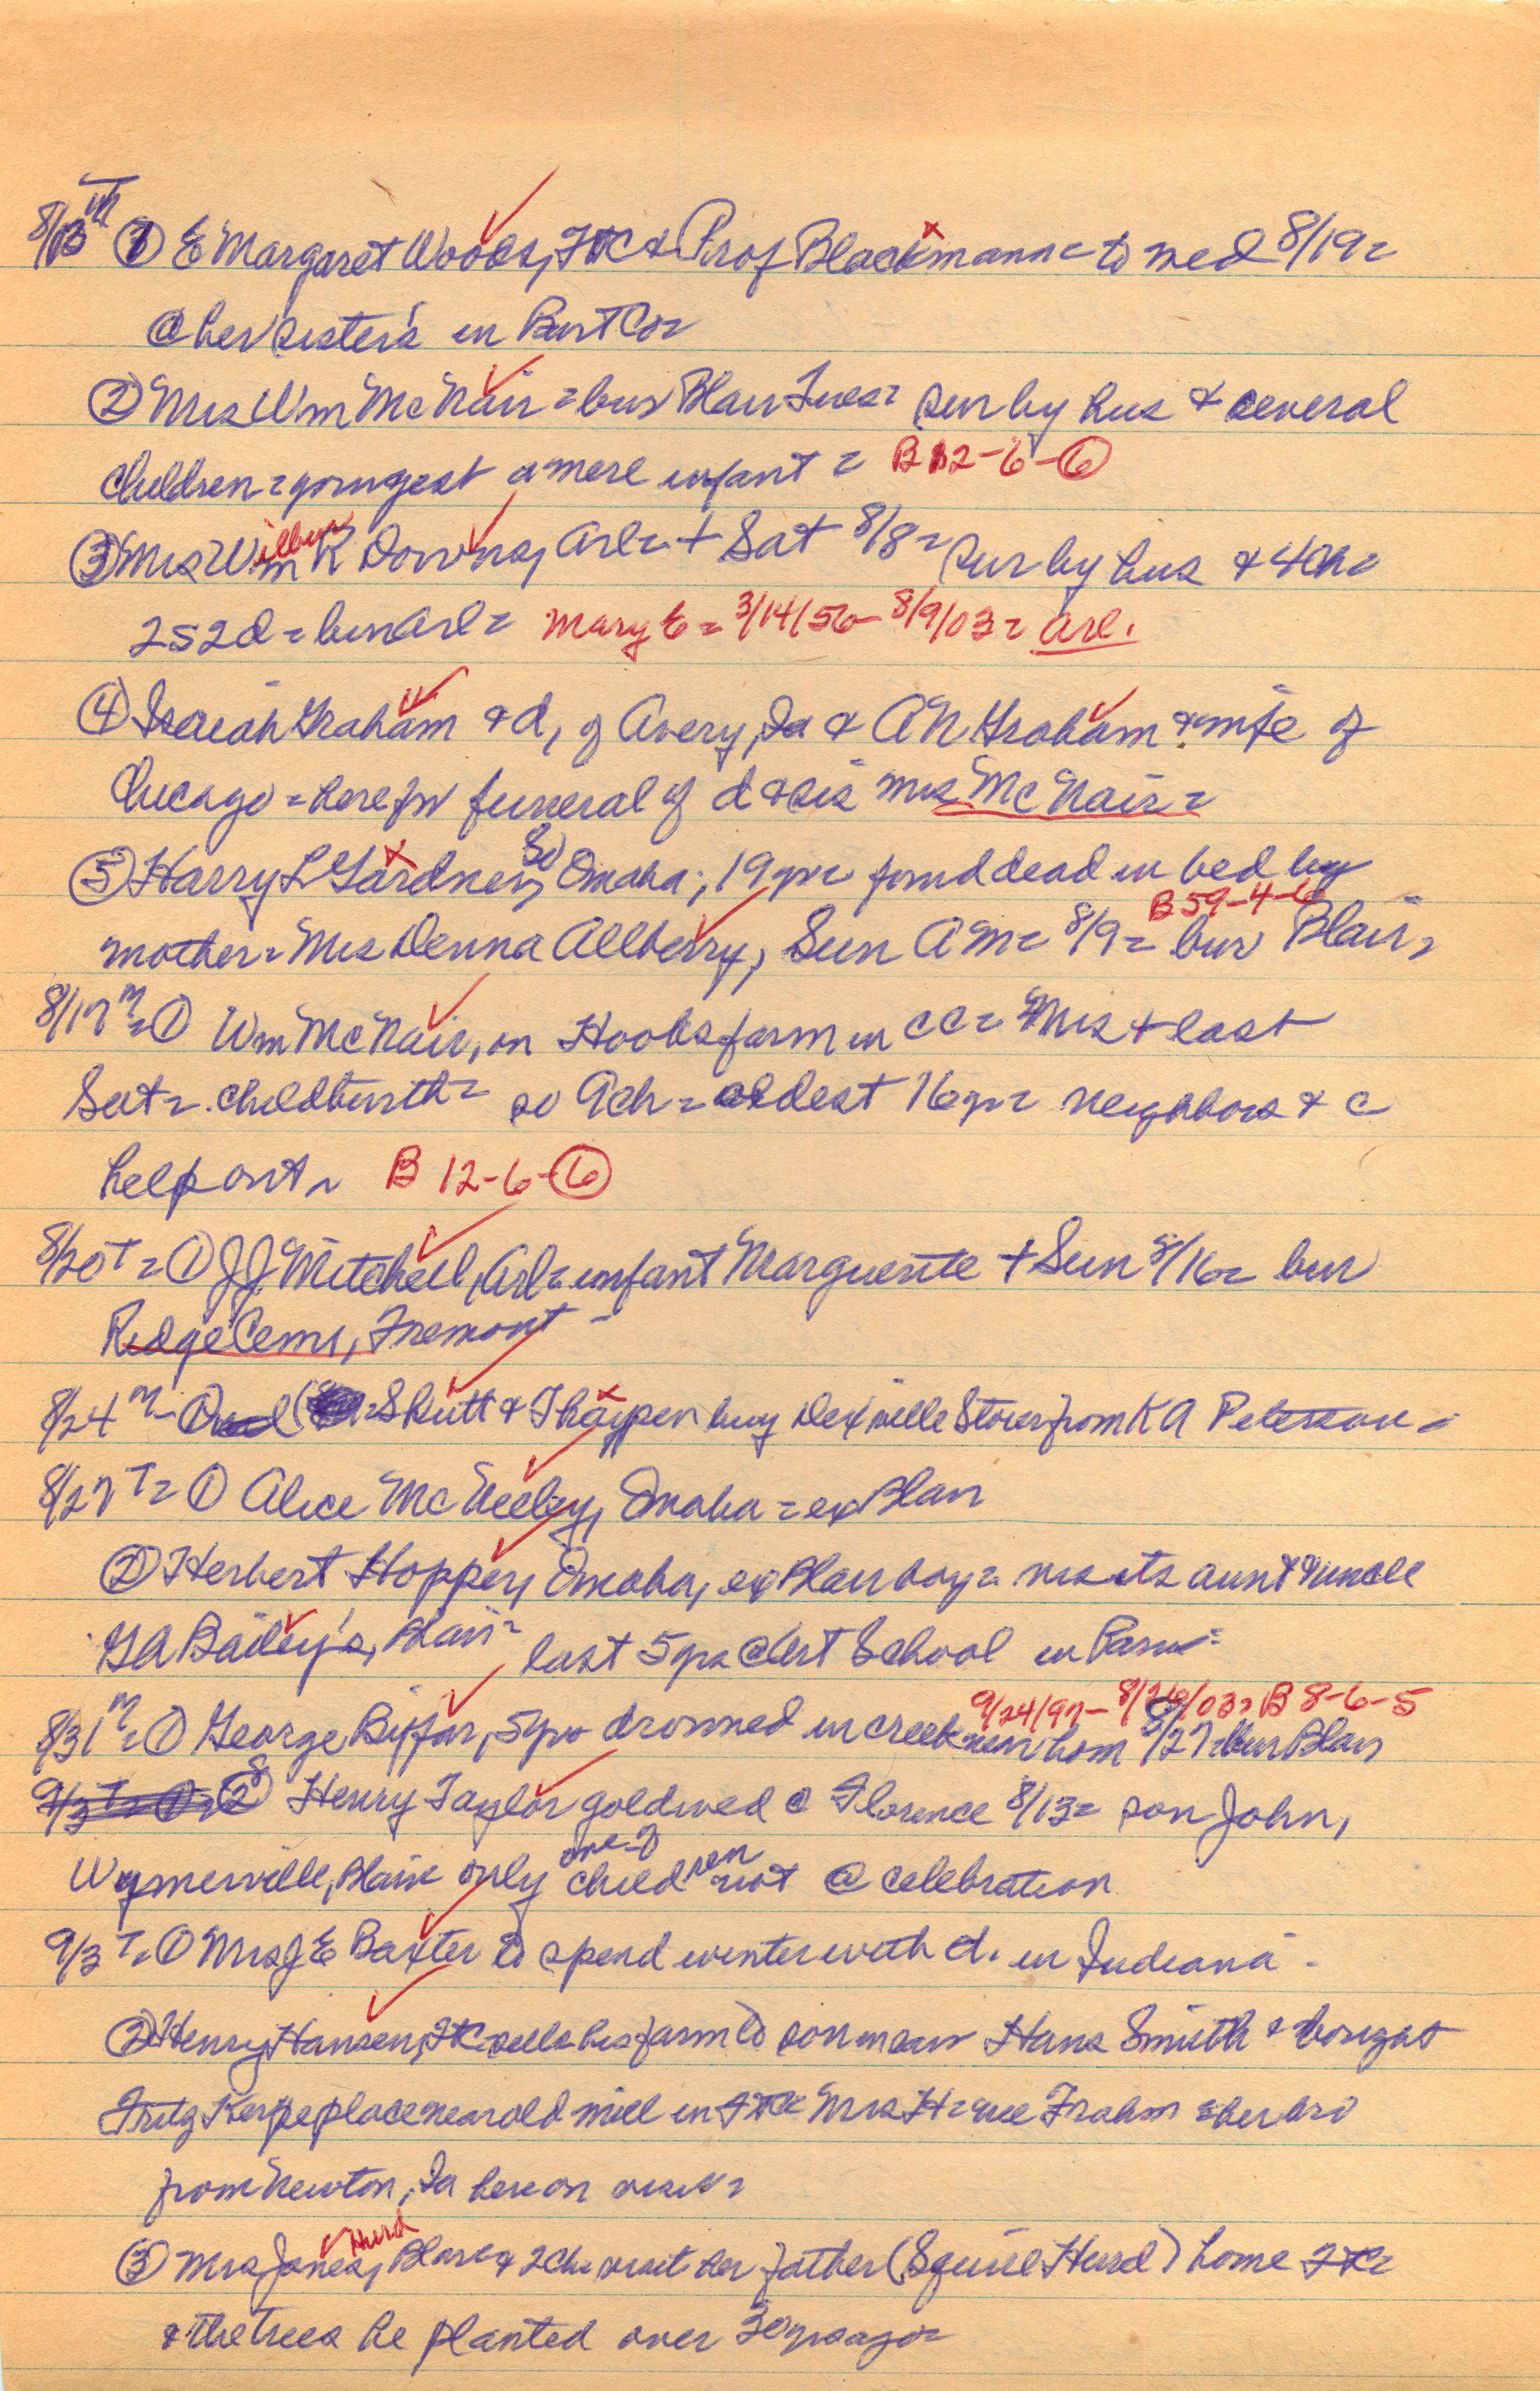 8/13 Th ① E Margaret Woods, FtC & Prof Blackmann = to wed 8/19 =
@ her sister's in Burt Co =
② Mrs Wm McNair = bur Blair Tues = sur by hus & several
children = youngest a mere infant = B 12-6-⑥
③ Mrs Wm Wilbur R Downs, Arl = + Sat 8/8 = sur by hus & 4 ch =
2s 2d = bur Arl = Mary E = 3/14/56 - 8/9/03 = Arl.
④ Isaiah Graham & d, of Avery, Ia & AN Graham & wife of
Chicago = here for funeral of d & sis Mrs McNair =
⑤ Harry L Gardner, So Omaha; 19 yr = found dead in bed by
mother = Mrs Denna Allberry, Sun AM = 8/9 = bur Blair = B 59-4-6
8/17 M = ① Wm McNair, on Hooks farm in CC = Mrs + last
Sat = childbirth = so 9 ch = oldest 16 yr = neighbors & c
help out = B 12-6-⑥
8/20 T = ① JJ Mitchell, Arl = infant Marguerite + Sun 8/16 = bur
Ridge Cem, Fremont -
8/24 M - ① Shutt & Thaypen buy Dexville Store from KA Peterson =
8/27 T = ① Alice McNeeley, Omaha = ex Blair
② Herbert Hopper, Omaha, ex Blair boy = visits aunt & uncle
GA Bailey's, Blair = last 5 yrs @ Art School in Paris =
8/31 M = ① George Byfar, 5 yr drowned in creek near hom 8/27 = bur Blair 9/24/97 - 8/26/03 = B 8-6-5
② Henry Taylor gold wed @ Florence 8/13 = son John,
Wymerville, Blair only one of children not @ celebration
9/3 T = ① Mrs JE Baxter to spend winter with d. in Indiana -
② Henry Hansen, FtC sells his farm to son in law Hans Smith & bought
Fritz Kempe place near old mill in FtC = Mrs H = nee Frahm & her bro
from Newton, Ia here on visit =
③ Mrs Jones, Hurd Blair & 2 ch visit her father (Squire Hurd) home FtC =
& the trees he planted over 30 yrs ago =